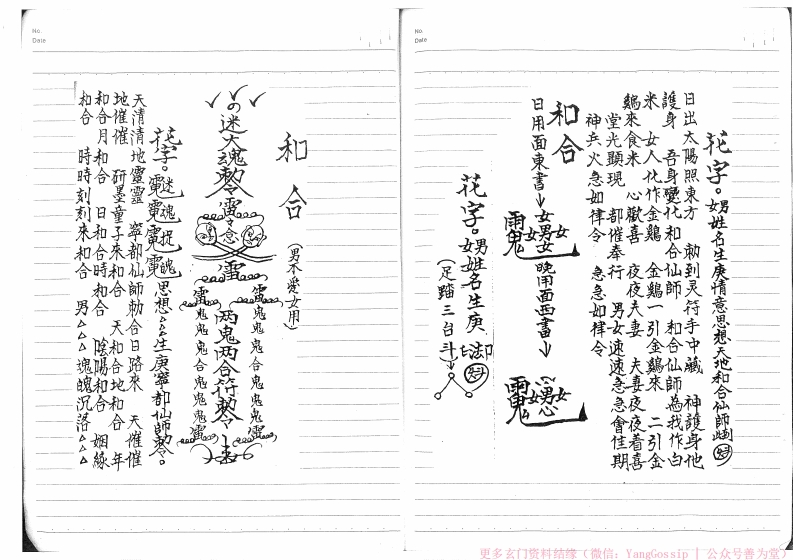 No.
Date
花字。男女姓名生庚情意思想天地和合仙師勅
日出太陽照東方 勅到灵符手中藏 神護身他
護身 吾身變化和合仙師 和合仙師為我作白
米 女人化作金鷄 金鷄一引金鷄來 二引金
鷄來食米 心歡喜 夜夜夫妻 夫妻夜夜着喜
堂光顯現 都催奉行 男女速速急急會佳期
神兵火急如律令 急急如律令
和合
日用面東書 女男女 晚用面西書
花字。男女姓名生庚
(足踏三台斗)
No.
Date
和合
(男不愛女用)
の迷大魂勅令雷
念
雷
雷鬼鬼鬼合鬼鬼鬼雷
两鬼两合符勅令
雷鬼鬼鬼合鬼鬼鬼雷
花字。
迷魂捉魄
思想△△△生庚寧都仙師勅令。
天清清地靈靈 寧都仙師勅合日路來 天催催
地催催 研墨童子來和合 天和合地和合 年
和合月和合 日和合時和合 陰陽和合 姻緣
和合 時時刻刻來和合 男△△△魂魄沉落△△△
更多玄门资料结缘（微信：YangGossip | 公众号善为堂）